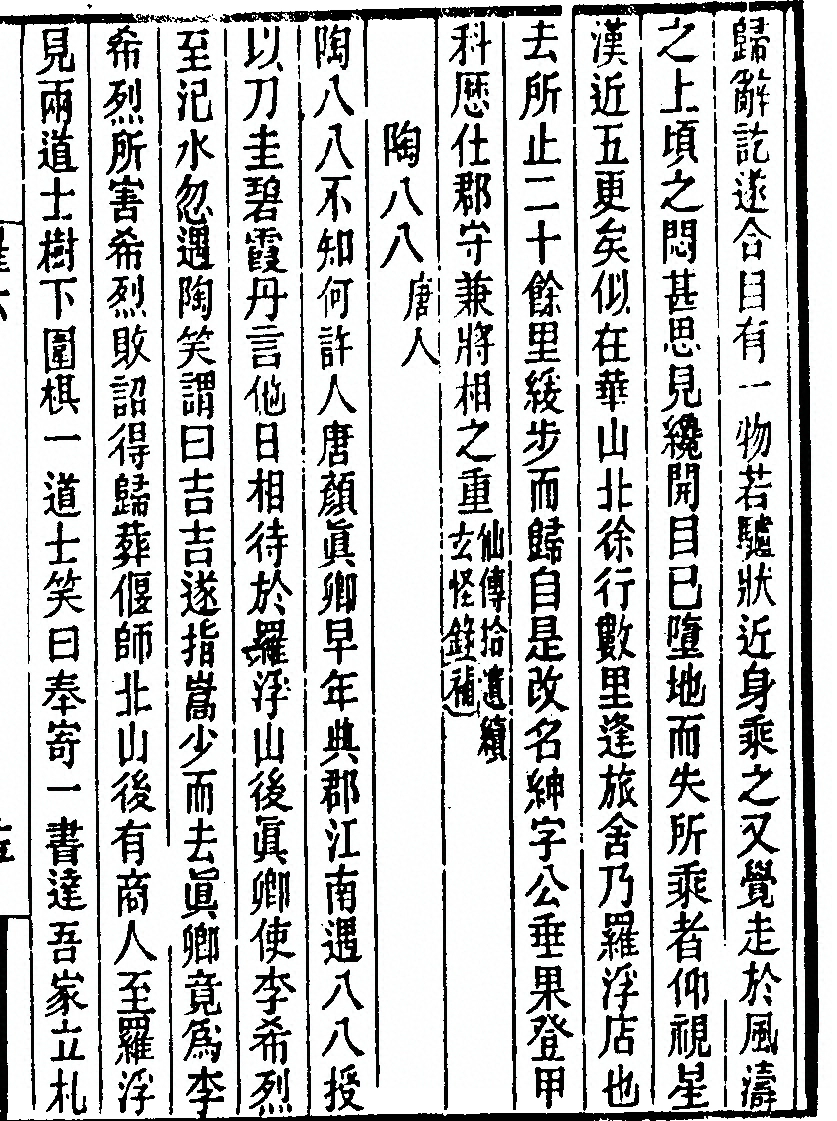 歸解訖遂合目有一物若驢狀近身乘之又覺走於風濤
之上頃之悶甚思見纔開目已墮地而失所乘者仰視星
漢近五更矣似在華山北徐行數里逢旅舍乃羅浮店也
去所止二十餘里緩步而歸自是改名紳字公垂果登甲
科歷仕郡守兼將相之重仙傳拾遺續玄怪錄補
陶八八唐人
陶八八不知何許人唐顏眞卿早年典郡江南遇八八授
以刀圭碧霞丹言他日相待於羅浮山後眞卿使李希烈
至汜水忽遇陶笑謂曰吉吉遂指嵩少而去眞卿竟爲李
希烈所害希烈敗詔得歸葬偃師北山後有商人至羅浮
見兩道士樹下圍棋一道士笑曰奉寄一書達吾家立札